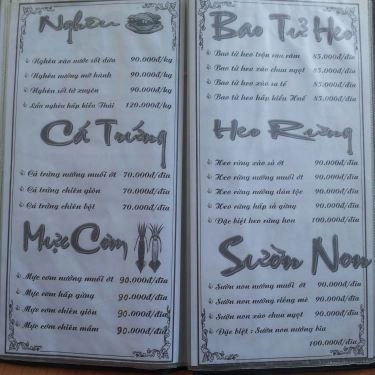 Nghêu
Nghêu xào nước sốt dừa 90.000đ/kg
Nghêu nướng mỡ hành 90.000đ/kg
Nghêu sốt tứ xuyên 90.000đ/kg
Lẩu nghêu hấp kiểu Thái 120.000đ/kg
Cá Trứng
Cá trứng nướng muối ớt 70.000đ/đĩa
Cá trứng chiên giòn 70.000đ/đĩa
Cá trứng chiên bột 70.000đ/đĩa
Mực Cơm
Mực cơm nướng muối ớt 90.000đ/đĩa
Mực cơm hấp gừng 90.000đ/đĩa
Mực cơm chiên giòn 90.000đ/đĩa
Mực cơm chiên mắm 90.000đ/đĩa
Bao Tử Heo
Bao tử heo trộn rau răm 85.000đ/đĩa
Bao tử heo xào chua ngọt 85.000đ/đĩa
Bao tử heo xào sa tế 85.000đ/đĩa
Bao tử heo hấp kiểu Huế 85.000đ/đĩa
Heo Rừng
Heo rừng xào sả ớt 90.000đ/đĩa
Heo rừng nướng muối ớt 90.000đ/đĩa
Heo rừng nướng dân tộc 90.000đ/đĩa
Heo rừng hấp sả gừng 90.000đ/đĩa
Đặc biệt heo rừng hon 100.000đ/đĩa
Sườn Non
Sườn non nướng muối ớt 90.000đ/đĩa
Sườn non nướng riềng mẻ 90.000đ/đĩa
Sườn non xào chua ngọt 90.000đ/đĩa
Đặc biệt : Sườn non nướng bia
100.000đ/đĩa